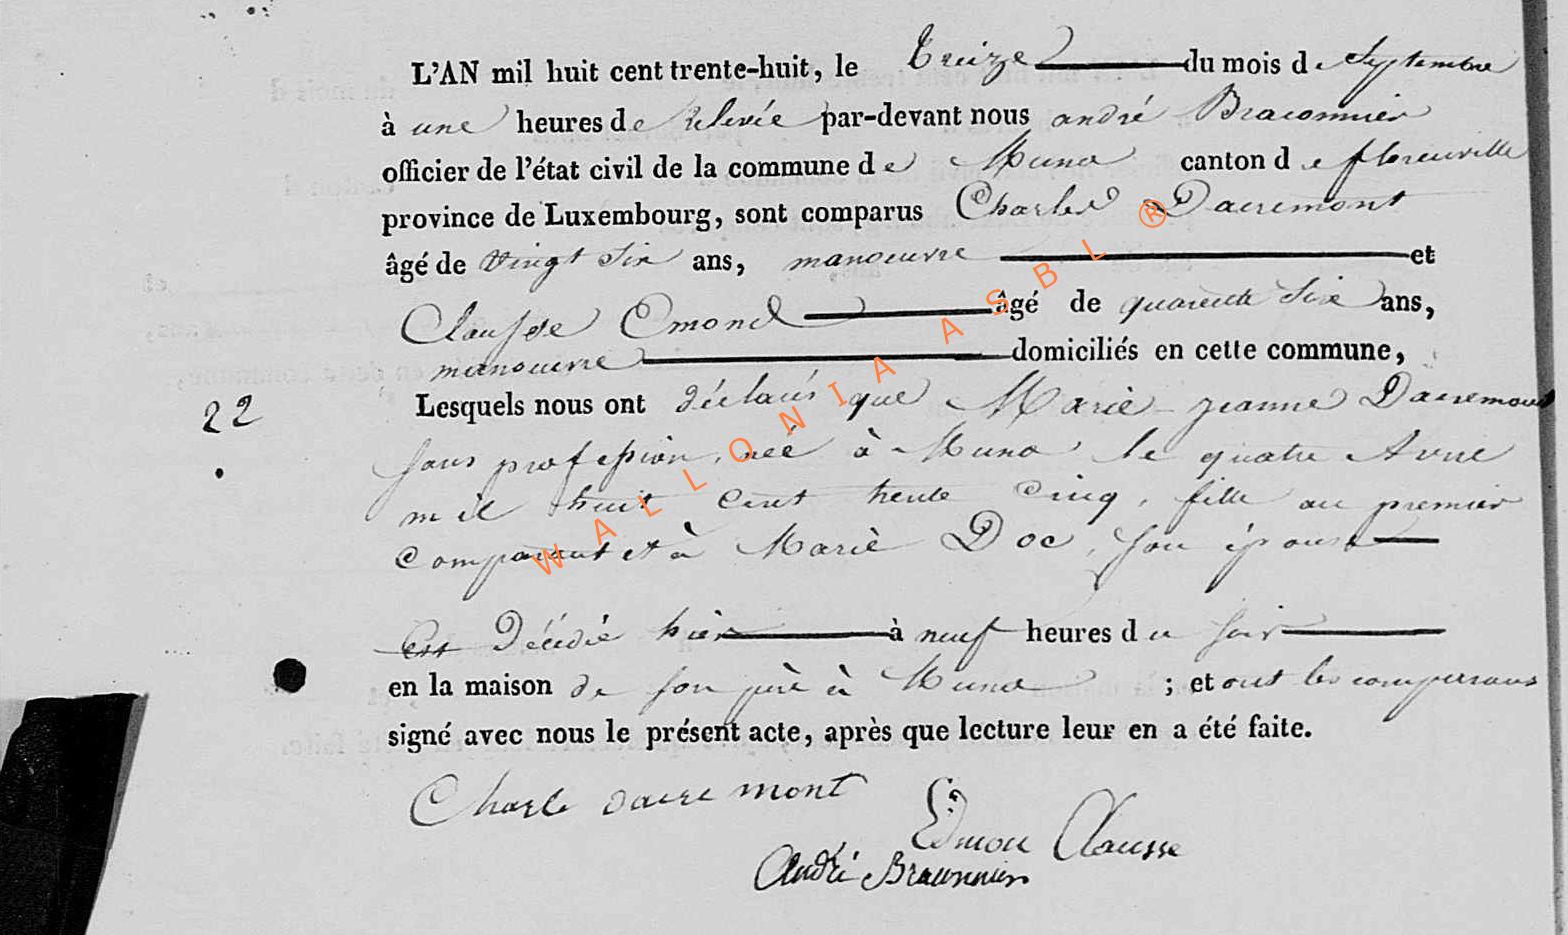 L'AN mil huit cent trente-huit, le treize du mois de Septembre
à une heures de relevée par-devant nous andré Braconnier
officier de l'état civil de la commune de Muno canton de florenville
province de Luxembourg, sont comparus Charles Dacremont
âgé de vingt six ans, manoeuvre et
Clausse Emond âgé de quarente six ans,
manouvre domiciliés en cette commune,
22 Lesquels nous ont déclarés que Marie jeanne Dacremont
sans profession, neé à Muno le quatre Avril
mil huit cent trente cinq, fille au premier
Comparant et à Marie Doc, son épouse
Est Décédée hier à neuf heures du soir
en la maison de son père à Muno ; et ont les comparans
signé avec nous le présent acte, après que lecture leur en a été faite.
Charle dacremont
Edmon Clausse
André Braconnier
WALLONIA ASBL ®